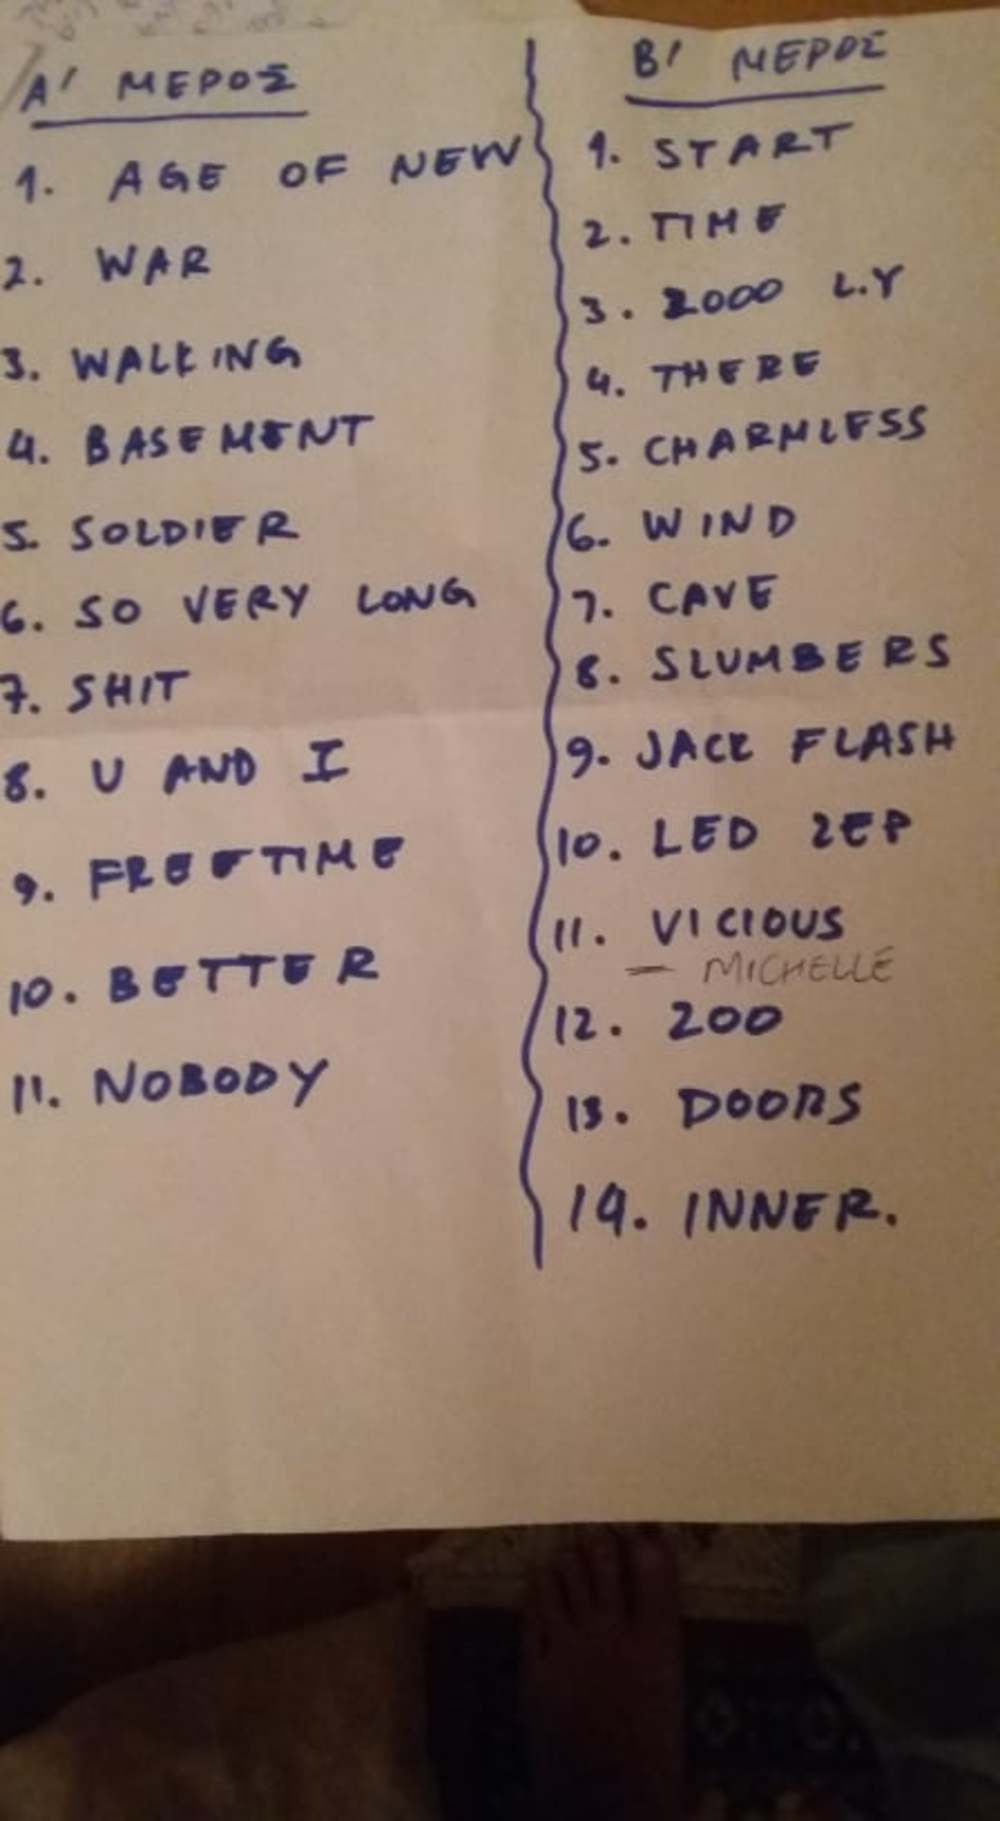 Α' ΜΕΡΟΣ
1. AGE OF NEW
2. WAR
3. WALKING
4. BASEMENT
5. SOLDIER
6. SO VERY LONG
7. SHIT
8. U AND I
9. FREETIME
10. BETTER
11. NOBODY
Β' ΜΕΡΟΣ
1. START
2. TIME
3. 2000 L.Y
4. THERE
5. CHARMLESS
6. WIND
7. CAVE
8. SLUMBERS
9. JACK FLASH
10. LED ZEP
11. VICIOUS
— MICHELLE
12. 200
13. DOORS
14. INNER.